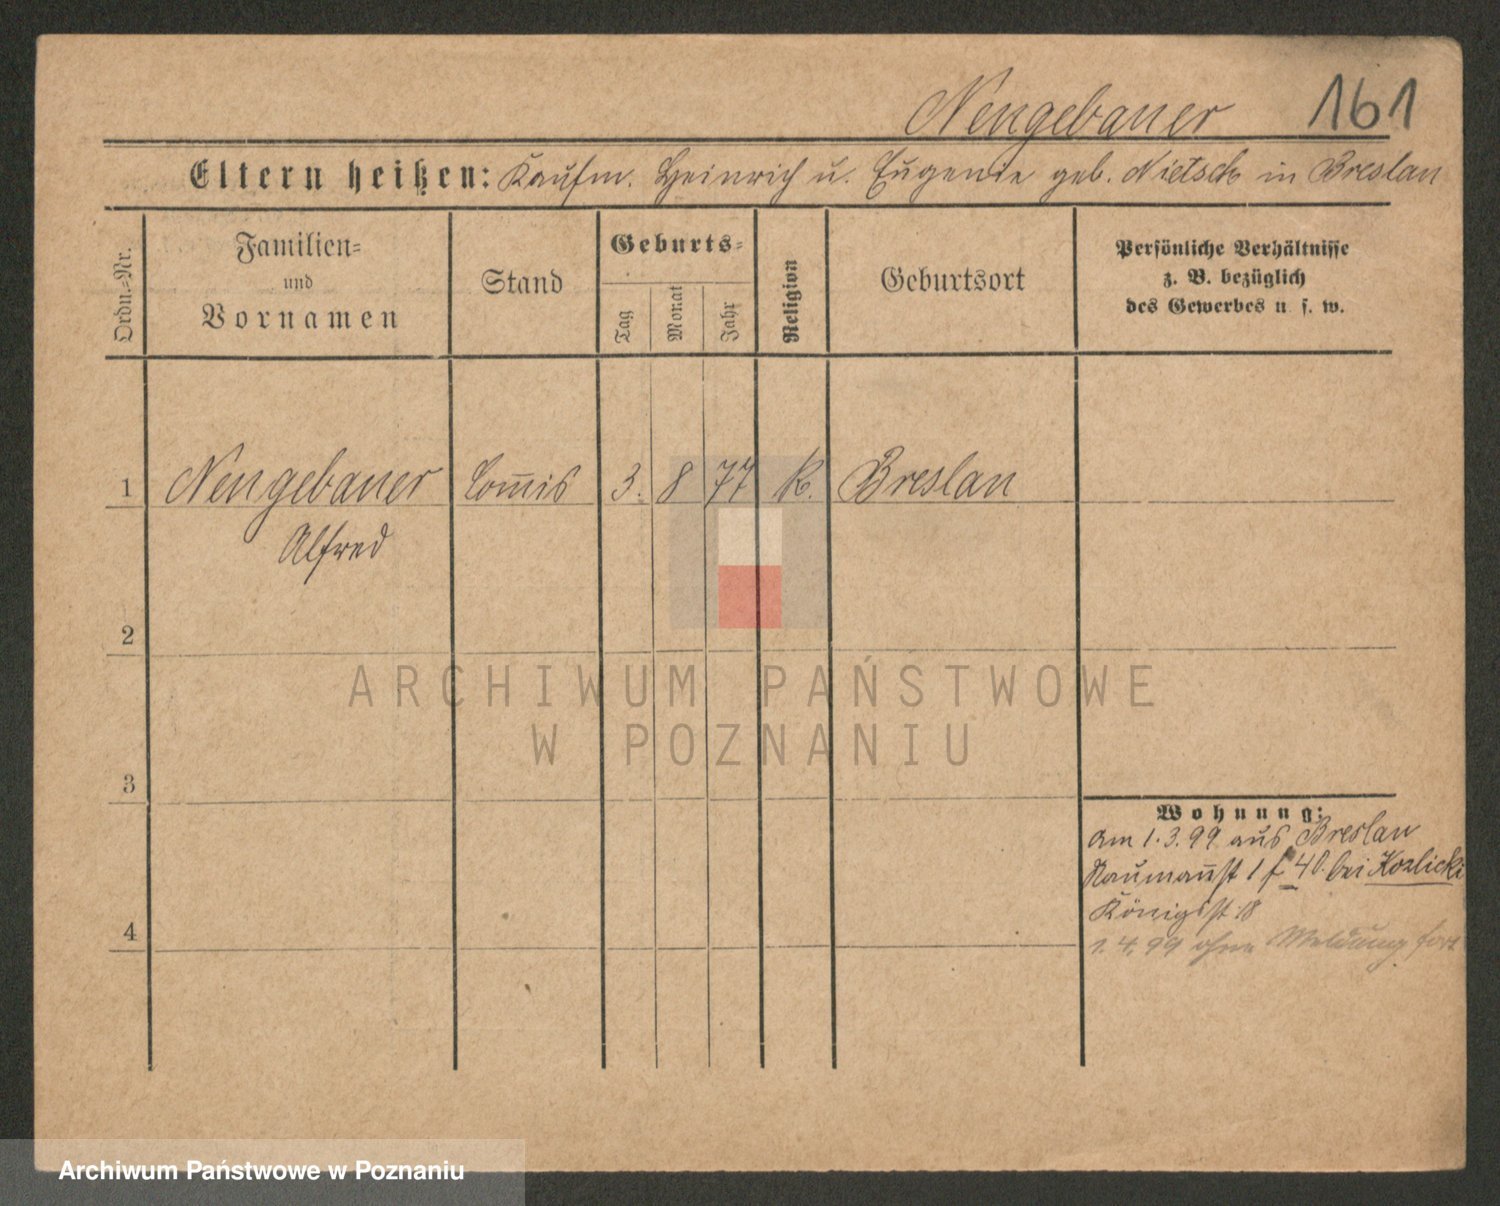 Neugebauer 161
Eltern heißen: Kaufm. Heinrich u. Eugenie geb. Nietsch in Breslau
Ordn.=Nr.
Familien=
und
Vornamen
Stand
Geburts=
Tag
Monat
Jahr
Religion
Geburtsort
Persönliche Verhältnisse
z. B. bezüglich
des Gewerbes u. s. w.
1 Neugebauer Com̄is 3. 8 77 k. Breslau
Alfred
2
3
4
Wohnung:
am 1.3.99 aus Breslau
Nauman̄st 1 40. bei Kozlicki
Königsst. 18
1.4.99 ohne Meldung fort
ARCHIWUM PAŃSTWOWE
W POZNANIU
Archiwum Państwowe w Poznaniu